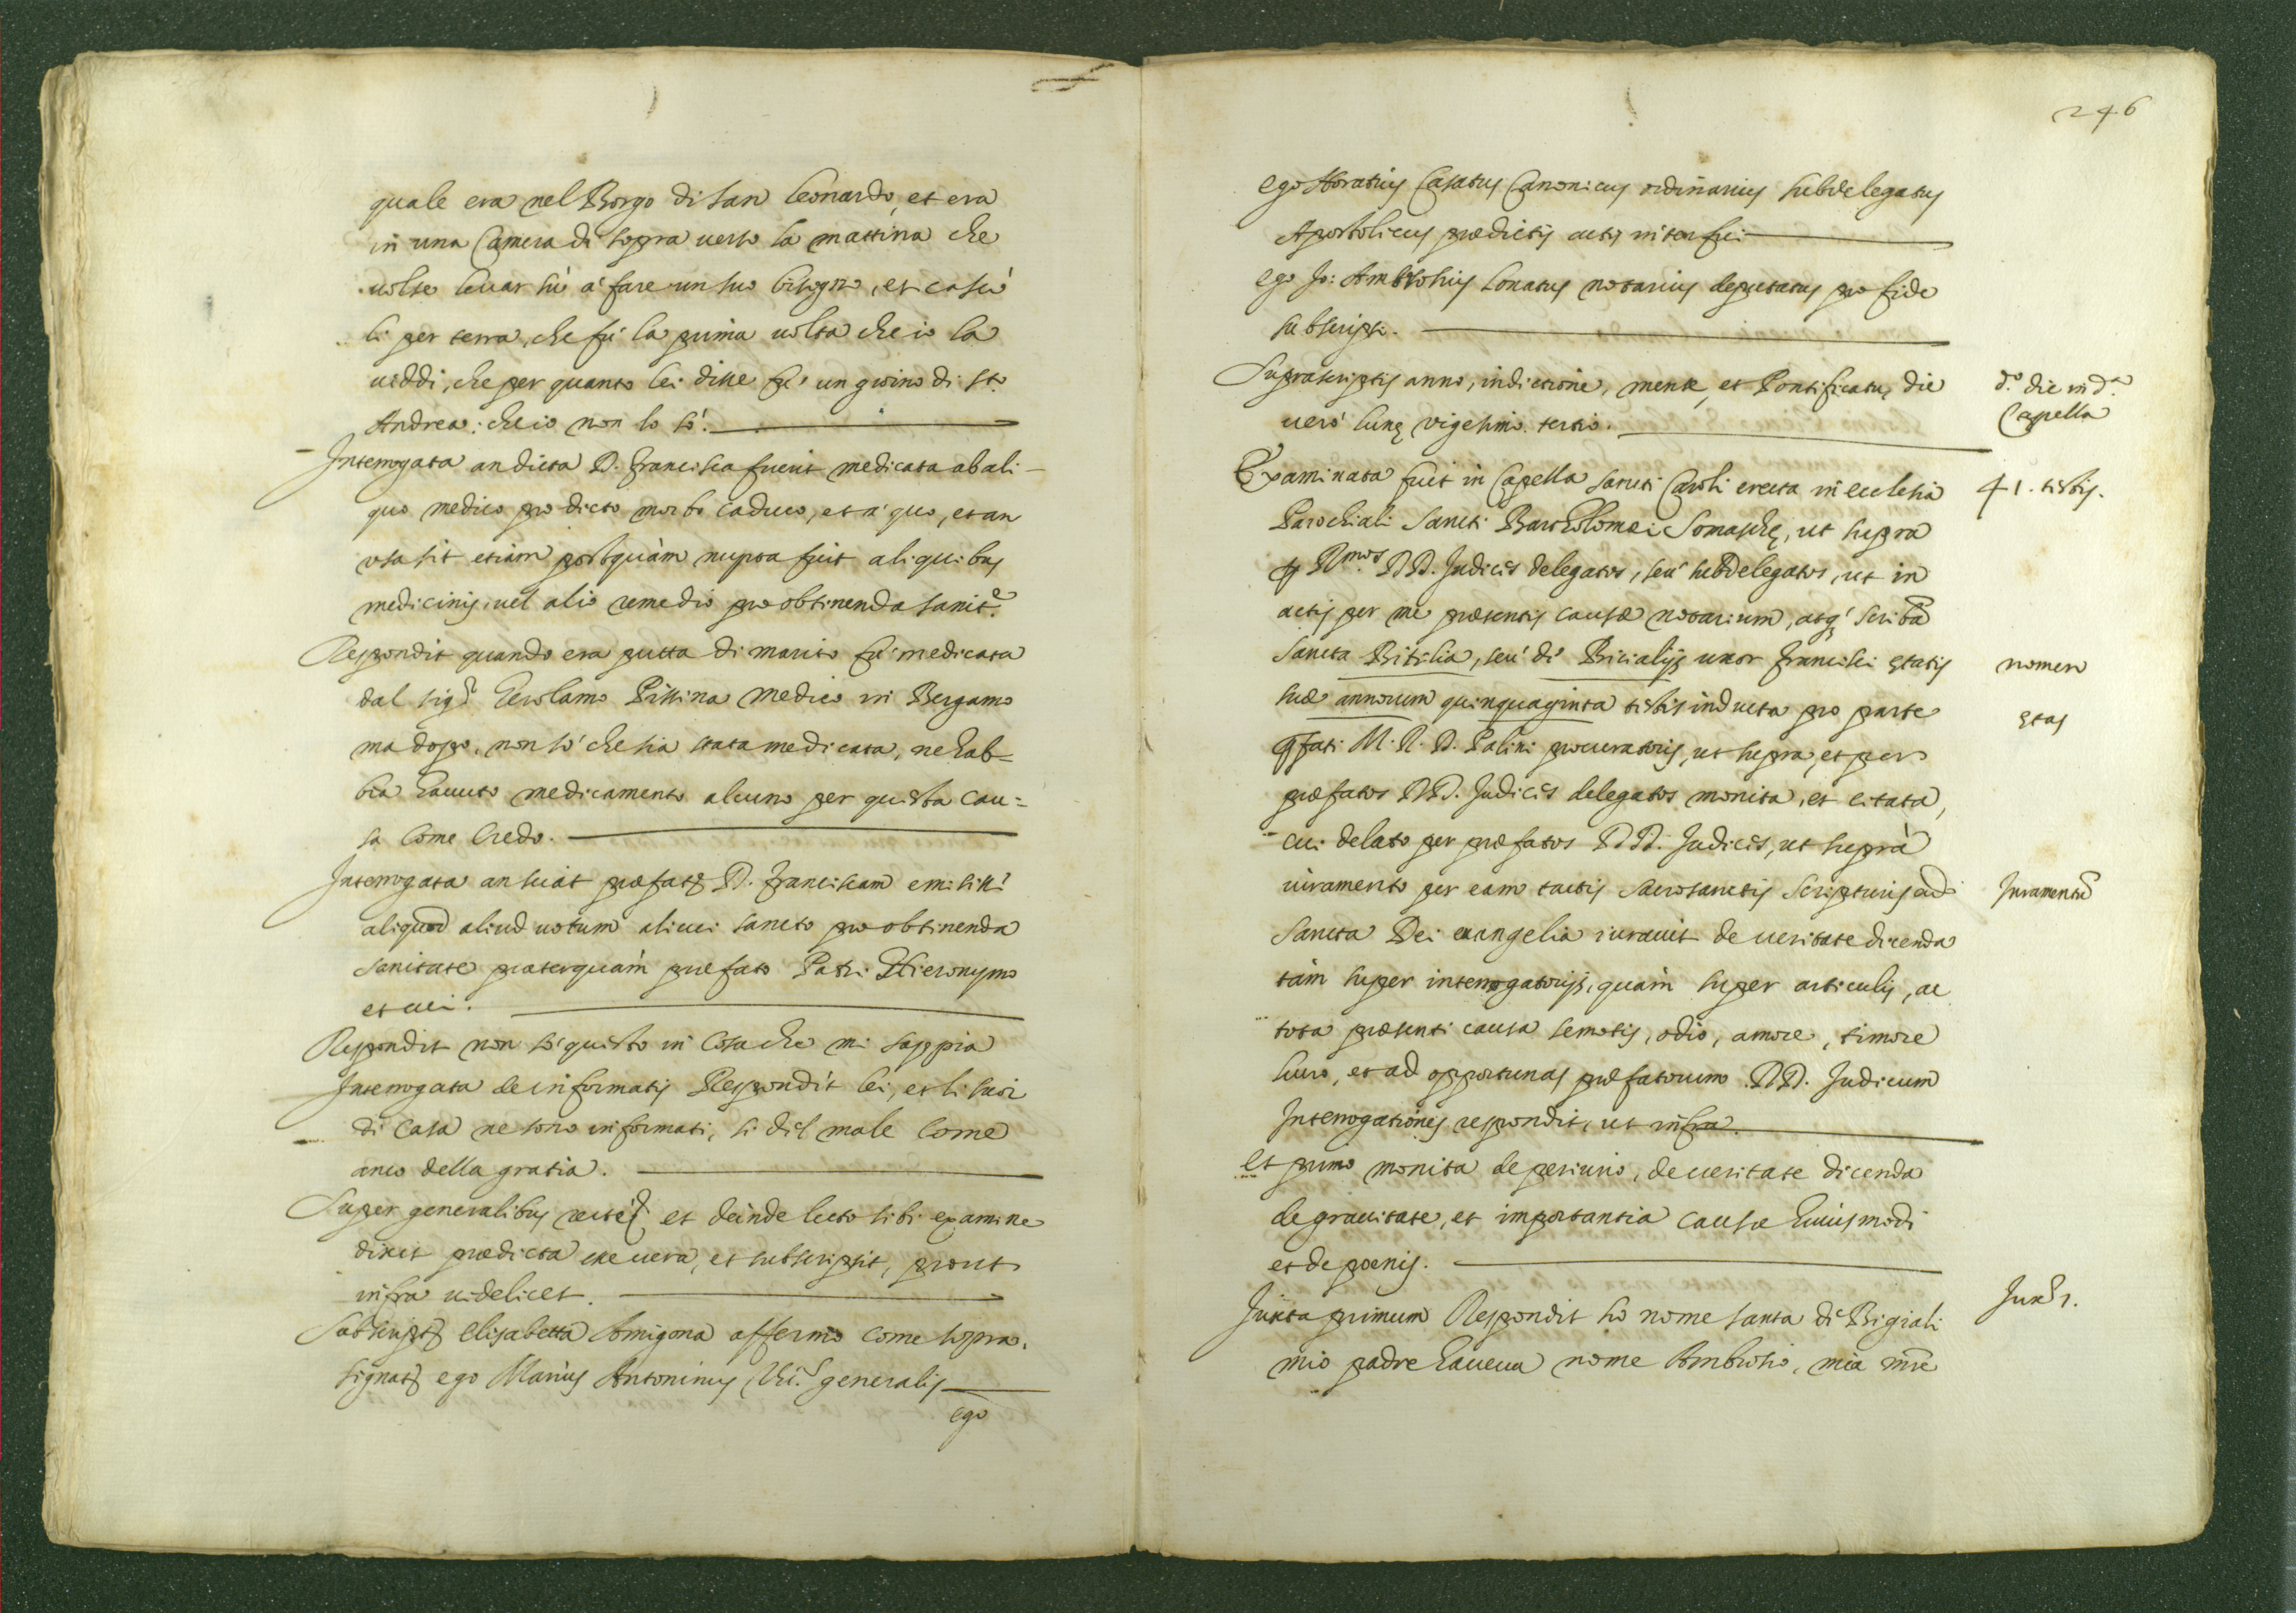 quale era nel Borgo di San Leonardo, et era
in una Camera di sopra verso la mattina che
volse levar sù a' fare un suo bisogno, et cascò
lì per terra, che fu la prima volta che io la
viddi, che per quanto lei disse fu' un giorno di Sto
Andrea: che io non lo sò.
Interrogata an dicta D. Francisca fuerit medicata ab ali-
quo medico pro dicto morbo caduco, et a' quo, et an
usa sit etiam postquàm nupta fuit aliquibus
medicinis, vel alio remedio pro obtinenda sanit.e
Respondit quando era putta di marito fu' medicata
dal sigr Gerolamo Pissina medico in Bergamo
ma dopo, non sò che sia stata medicata, ne hab=
bia havuto medicamento alcuno per questa cau=
sa come credo.
Interrogata an sciat præfatā D. Franciscam emisisse
aliquod aliud votum alicui sancto pro obtinenda
sanitate præterquàm præfato Patri Hieronymo
et cui.
Respondit non sò questo in cosa che mi sappia
Interrogata de informatis Respondit lei, et li suoi
di casa ne sono informati, sì del male come
anco della gratia.
Super generalibus recte et deinde lecto sibi examine
dixit prædicta esse vera, et subscripsit, prout
infra videlicet.
Subscripta Elisabetta Amigona affermo come sopra.
signat ego Marius Antoninus Vic.s generalis
ego
246
ego Horatius Casatus Canonicus ordinarius subdelegatus
Apostolicus prædictis actis interfui
ego Jo: Ambrosius Lonatus notarius deputatus pro fide
subscripsi.
Suprascriptis anno, indictione, mense, et Pontificatu, die
verò lunę vigesimo tertio.
d.o die in d.a
Capella
Examinata fuit in Capella sancti Caroli erecta in ecclesia
41. testis.
Parochiali Sancti Bartholomæi Somaschę, ut supra
p Rmos DD. Judices delegatos, seu' subdelegatos, ut in
actis per me præsentis causæ notarium, atq' scribā
Sancta Bitilia, seu' de' Bicialijs uxor Francisci ętatis
nomen
suæ annorum quinquaginta testis inducta pro parte
ętas
pfati M. R. D. Palini procuratoris, ut supra, et per
præfatos DD. Judices delegatos monita, et citata,
cui delato per præfatos DD. Judices, ut suprà
iuramento per eam tactis sacrosanctis Scripturis ad
Juramentū
Sancta Dei euangelia iuravit de veritate dicenda
tàm super interrogatorijs, quàm super articulis, ac
tota præsenti causa semotis, odio, amore, timore
lucro, et ad opportunas præfatorum DD. Judicum
Interrogationes respondit, ut infra.
et primo monita de periurio, de veritate dicenda
de gravitate, et importantia causæ huiusmodi
et de pœnis.
Juxta primum Respondit hò nome Santa de Bigiali
Jux.a 1.
mio padre haveva nome Ambrosio, mia mrē